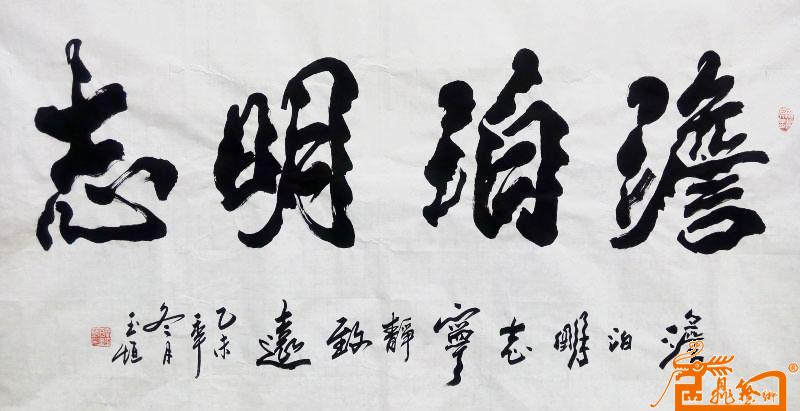 澹泊明志
澹泊明志寧静致遠
乙未年
冬月
玉恒